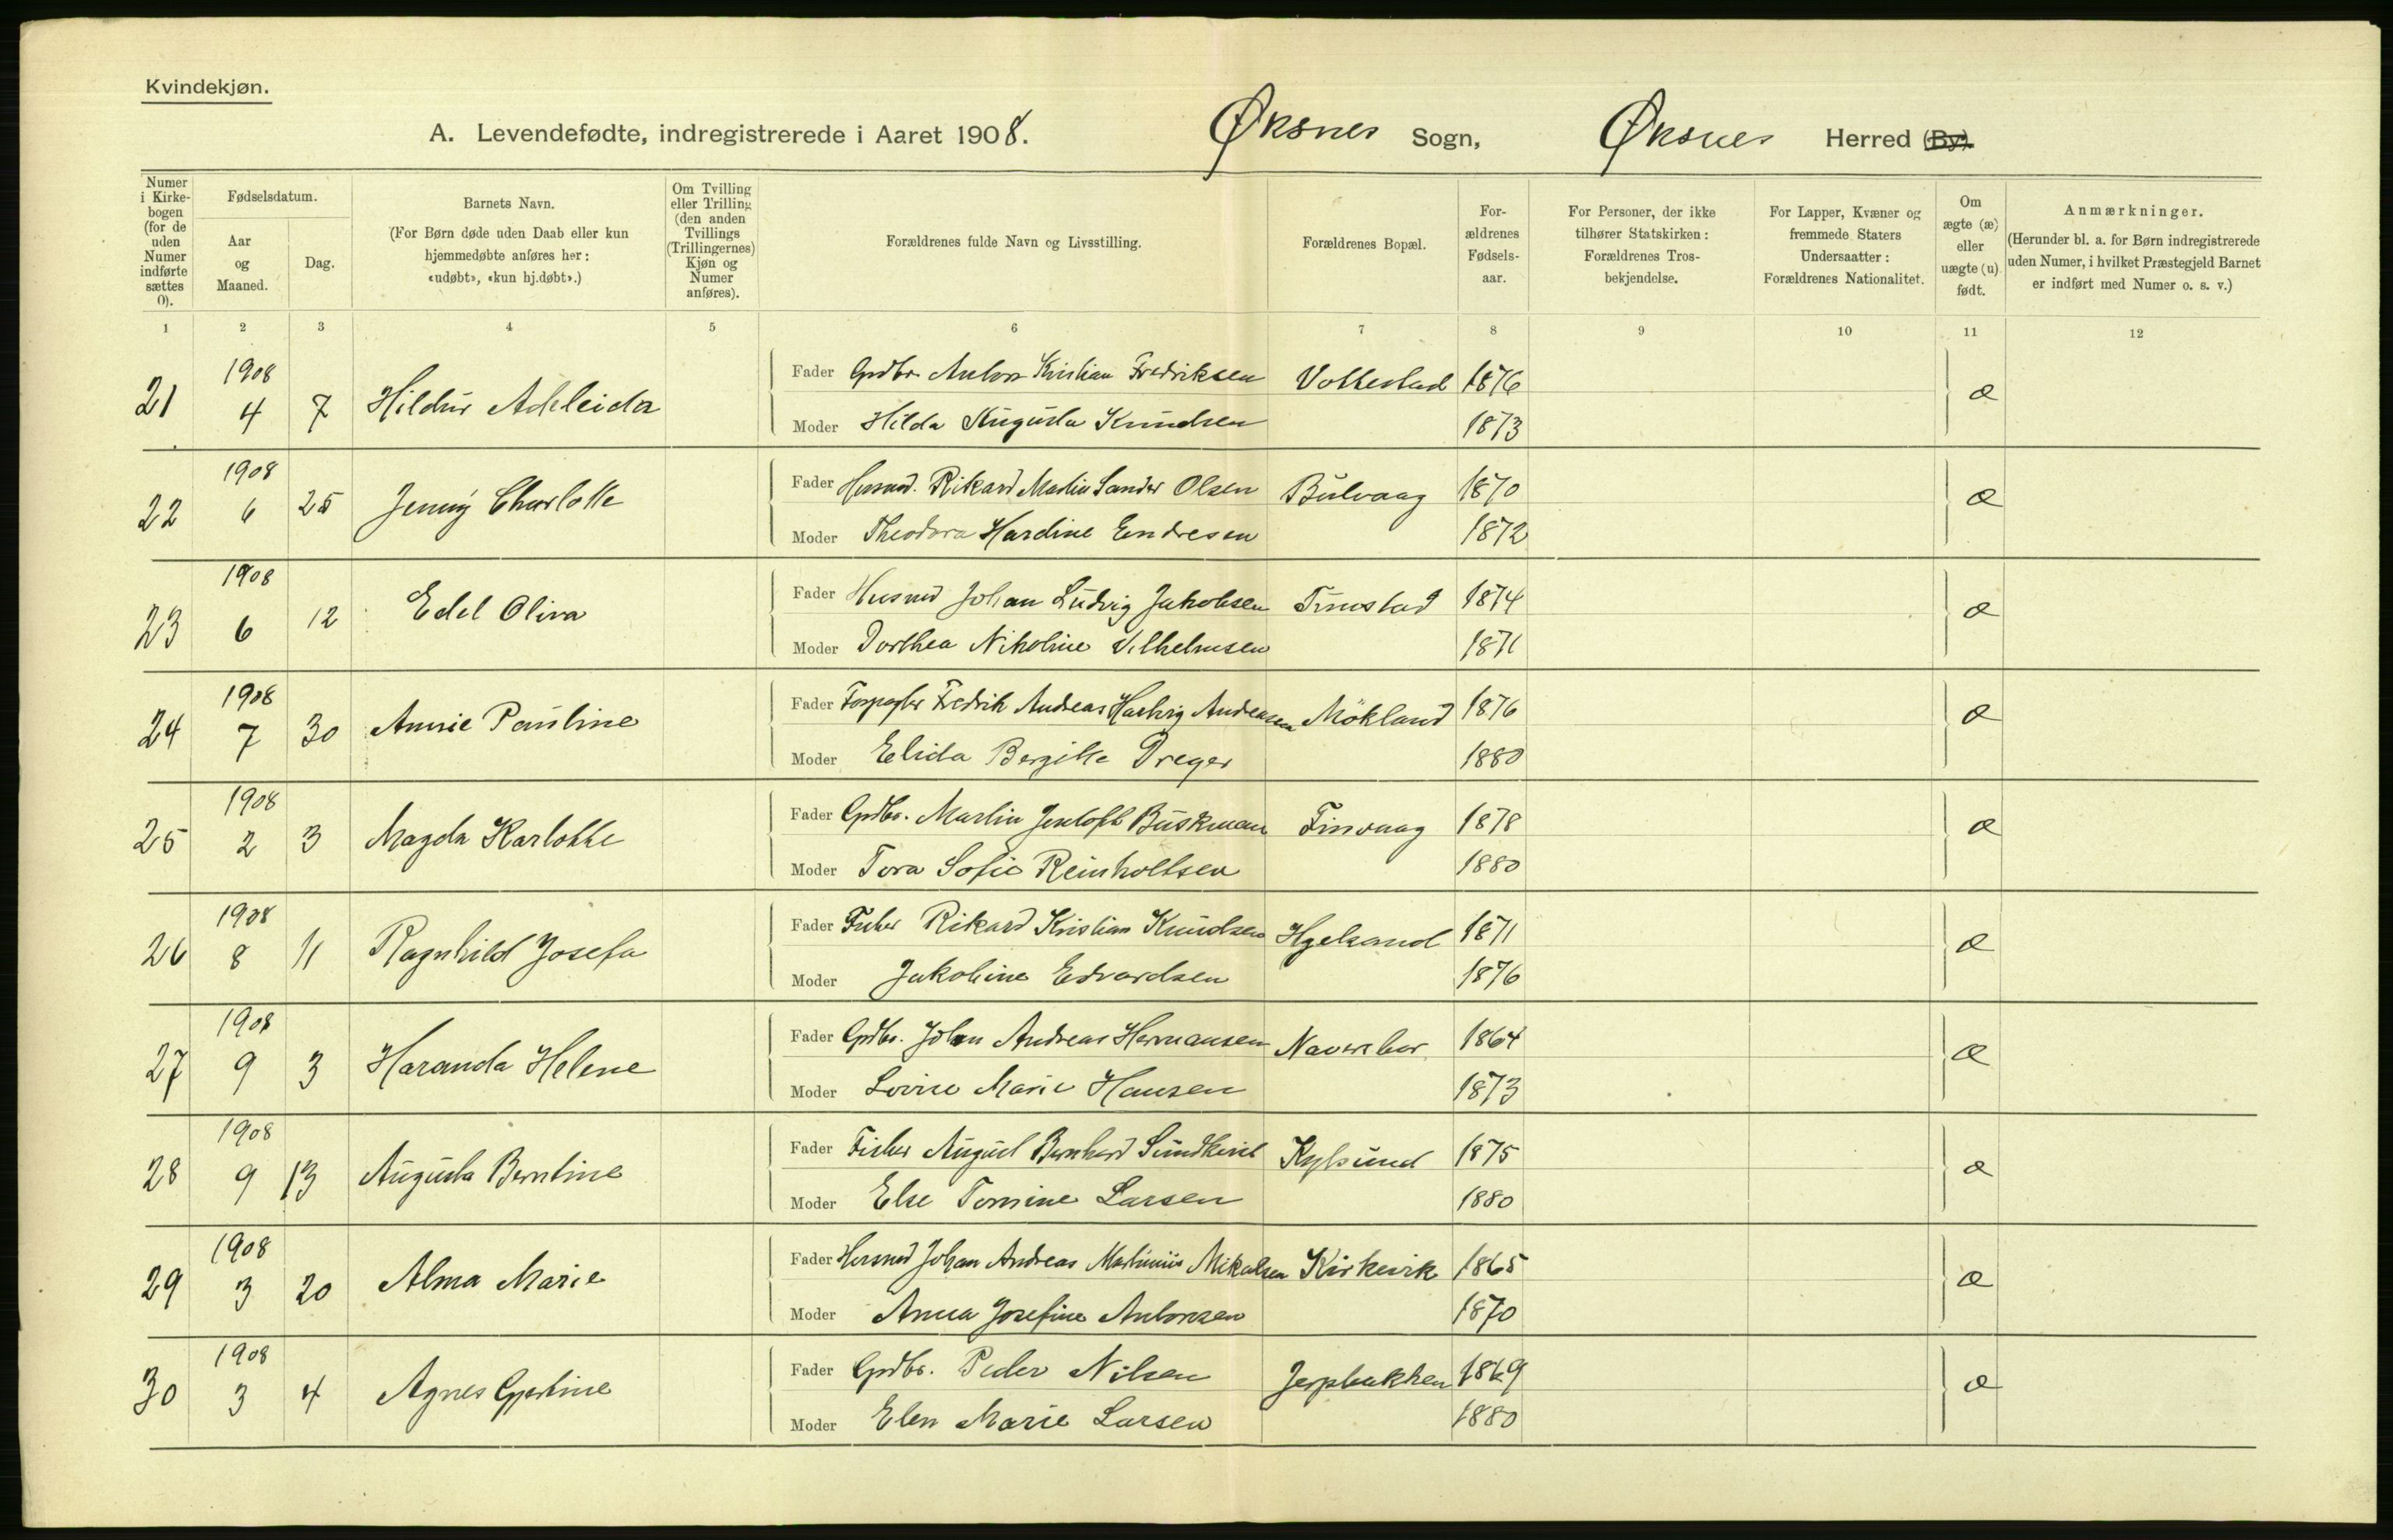 Kvindekjøn.
A. Levendefødte, indregistrerede i Aaret 1908. Øksnes Sogn, Øksnes Herred (By).
Numer i Kirkebogen (for de uden Numer indførte sættes 0).
Fødselsdatum.
Aar og Maaned.
Dag.
Barnets Navn.
(For Børn døde uden Daab eller kun hjemmedøbte anføres her: «udøbt», «kun hj.døbt».)
Om Tvilling eller Trilling (den anden Tvillings (Trillingernes) Kjøn og Numer anføres).
Forældrenes fulde Navn og Livsstilling.
Forældrenes Bopæl.
Forældrenes Fødselsaar.
For Personer, der ikke tilhører Statskirken: Forældrenes Trosbekjendelse.
For Lapper, Kvæner og fremmede Staters Undersaatter: Forældrenes Nationalitet.
Om ægte (æ) eller uægte (u) født.
Anmærkninger.
(Herunder bl. a. for Børn indregistrerede uden Numer, i hvilket Præstegjeld Barnet er indført med Numer o. s. v.)
1 2 3 4 5 6 7 8 9 10 11 12
21 1908 4 7 Hildur Adeleida Fader Grdbr. Anton Kristian Fredriksen Vottestad 1876 æ
Moder Hilda Augusta Knudsen 1873
22 1908 6 25 Jenny Charlotte Fader Husmd. Rikard Martin Sander Olsen Bulvaag 1870 æ
Moder Theodora Hardine Endresen 1872
23 1908 6 12 Edel Oliva Fader Husmd Johan Ludvig Jakobsen Tunstad 1874 æ
Moder Dorthea Nikoline Vilhelmsen 1871
24 1908 7 30 Annie Pauline Fader Forpagter Fredrik Andreas Hartvig Andreasen Mökland 1876 æ
Moder Elida Bergitte Dreyer 1880
25 1908 2 3 Magda Karlotte Fader Grdbr. Martin Jentoft Buskman Finvaag 1878 æ
Moder Tora Sofie Reinholtsen 1880
26 1908 8 11 Ragnhild Josefa Fader Fisker Rikard Kristian Knudsen 1871 æ
Moder Jakobine Edvardsen 1876
27 1908 9 3 Haranda Helene Fader Grdbr. Johan Andreas Hermansen 1864 æ
Moder Lovise Marie Hansen 1873
28 1908 9 13 Augusta Berntine Fader Fisker August Bernhard Sundkvist 1875 æ
Moder Else Tomine Larsen 1880
29 1908 3 20 Alma Marie Fader Husmd Johan Andreas Martinius Mikalsen Kirkevik 1865 æ
Moder Anna Josefine Antonsen 1870
30 1908 3 4 Agnes Gjertine Fader Grdbr. Peder Nilsen Jerpbakken 1869 æ
Moder Elen Marie Larsen 1880